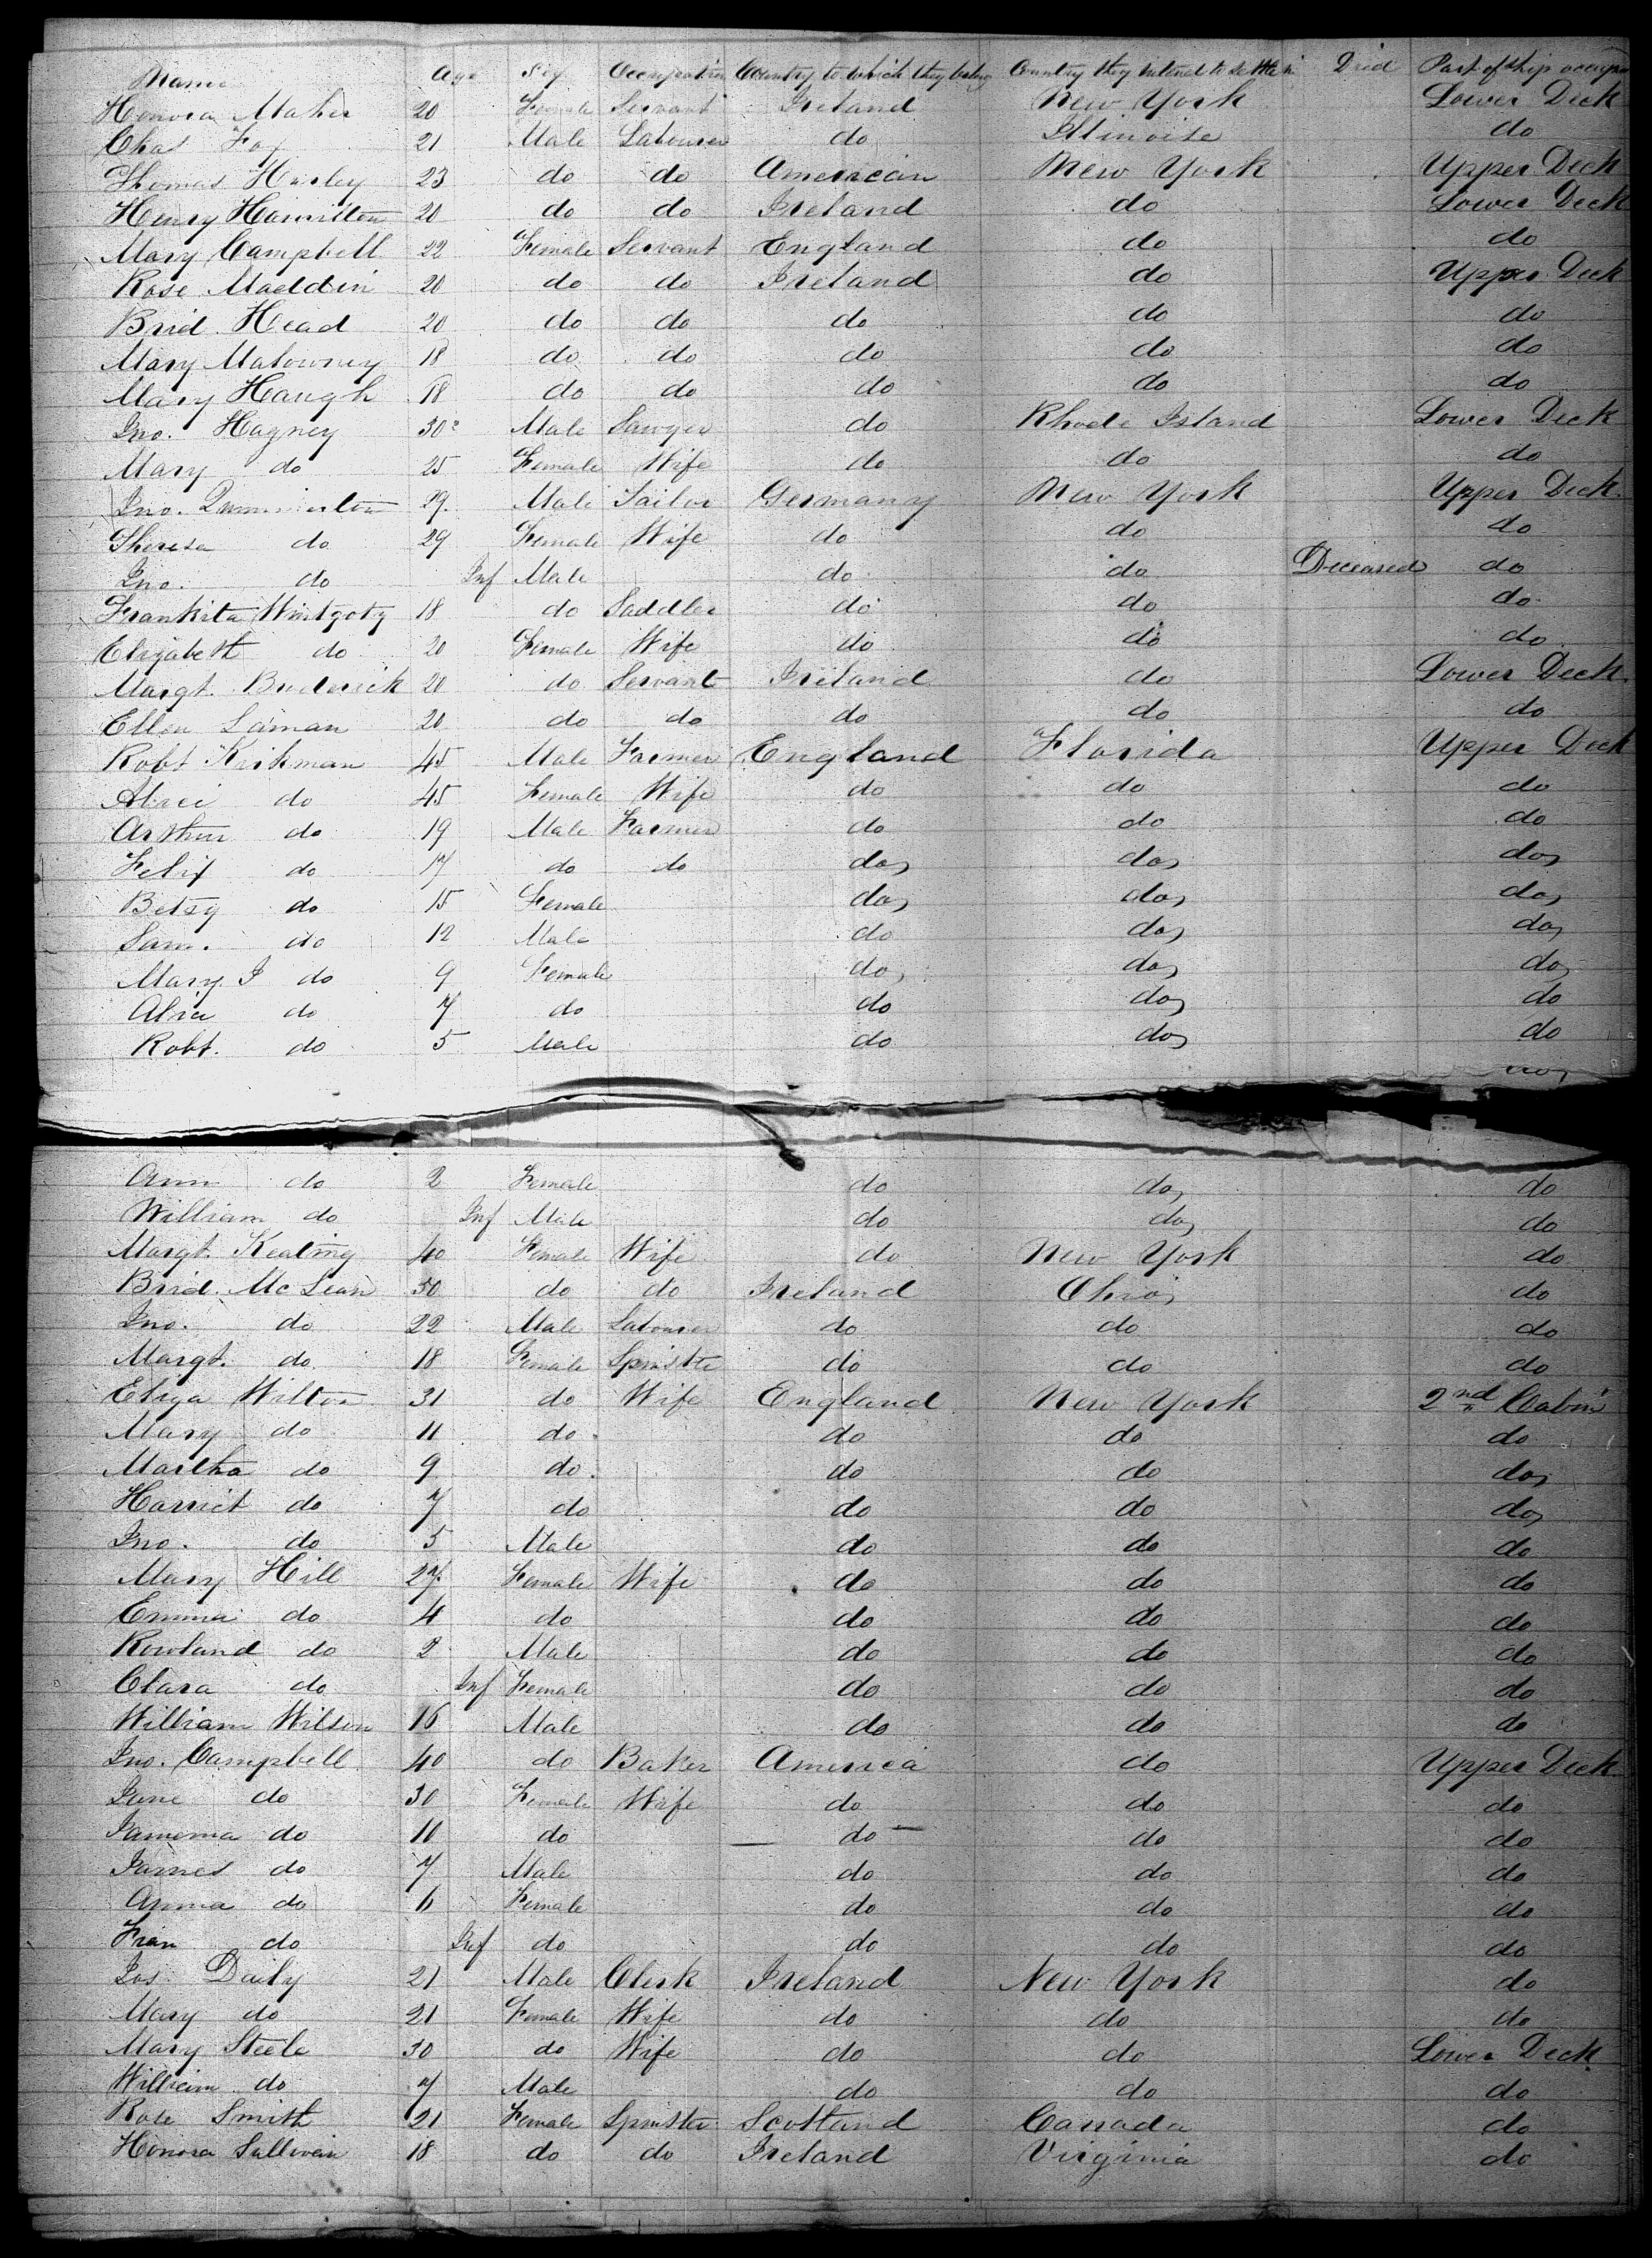 Name Age Sex Occupation Country to which they belong Country they intend to settle in Died Part of ship occupied
Honora Maher 20 Female Servant Ireland New York Lower Deck
Chas Fox 21 Male Labourer do Illinoise do
Thomas Hurley 23 do do American New York Upper Deck
Henry Hamilton 20 do do Ireland do Lower Deck
Mary Campbell 22 Female Servant England do do
Rose Maddin 20 do do Ireland do Upper Deck
Brid. Head 20 do do do do do
Mary Malowney 18 do do do do do
Mary Haugh 18 do do do do do
Jno. Hagney 30 Male Sawyer do Rhode Island Lower Deck
Mary do 25 Female Wife do do do
Jno. 29 Male Tailor Germany New York Upper Deck
Theresa do 29 Female Wife do do do
Jno. do Inf Male do do Deceased do
Frankita 18 do Saddler do do do
Elizabeth do 20 Female Wife do do do
Margt. Broderick 20 do Servant Ireland do Lower Deck
Ellen Laman 20 do do do do do
Robt Kirkman 45 Male Farmer England Florida Upper Deck
Alice do 45 Female Wife do do do
Arthur do 19 Male Farmer do do do
Felix do 17 do do do do do
Betsy do 15 Female do do do
Sam. do 12 Male do do do
Mary J do 9 Female do do do
Alice do 7 do do do do
Robt. do 5 Male do do do
do
Ann do 2 Female do do do
William do Inf Male do do do
Margt. Keating 40 Female Wife do New York do
Brid. McLean 50 do do Ireland Ohio do
Jno. do 22 Male Labourer do do do
Margt. do 18 Female Spinster do do do
Eliza Wilton 31 do Wife England New York 2nd Cabin
Mary do 11 do do do do
Martha do 9 do do do do
Harriet do 7 do do do do
Jno. do 5 Male do do do
Mary Hill 27 Female Wife do do do
Emma do 4 do do do do
Rowland do 2 Male do do do
Clara do Inf Female do do do
William Wilson 16 Male do do do
Jno. Campbell 40 do Baker America do Upper Deck
Jane do 30 Female Wife do do do
Jamima do 10 do do do do
James do 7 Male do do do
Anna do 6 Female do do do
Fran do Inf do do do do
Jos. Daily 21 Male Clerk Ireland New York do
Mary do 21 Female Wife do do do
Mary Steele 30 do Wife do do Lower Deck
William do 7 Male do do do
Rose Smith 21 Female Spinster Scotland Canada do
Honora Sullivan 18 do do Ireland Virginia do